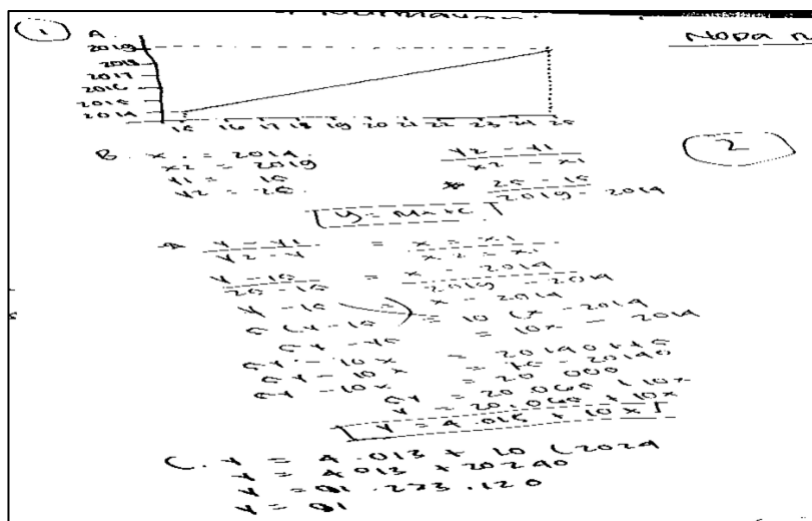 1 A.
2019
2018
2017
2016
2015
2014
15 16 17 18 19 20 21 22 23 24 25
B. x1 = 2014
x2 = 2019
y1 = 15
y2 = 25
y2 - y1
x2 - x1
25 - 15
2019 - 2014
2
y = mx + c
y - y1 = x - x1
y2 - y x2 - x1
y - 15 = x - 2014
25 - 15 2019 - 2014
y - 15 = x - 2014
5 (y - 15 = 10 (x - 2014
= 10x - 2014
5y - 10x
5y - 10x
5y - 10x
+ 10x
y = 20.065 + 10x
y = 4.013 + 10x
C. y = 4.013 + 10 (2024
y = 4013 + 20240
y = 81.273.120
y = 81